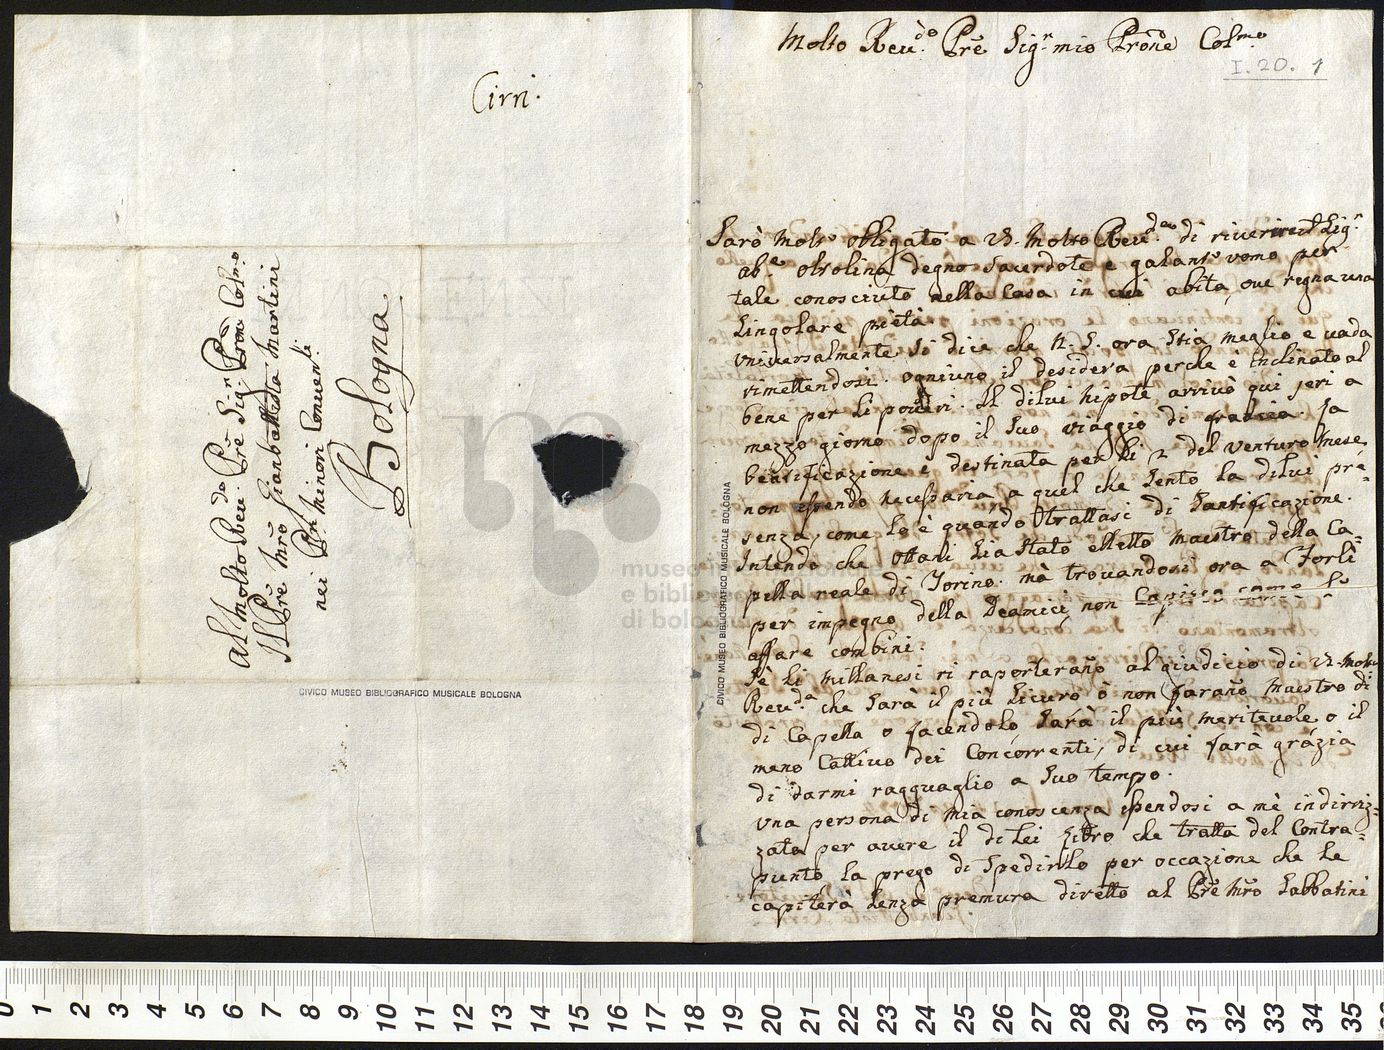 Cirri.
Al Molto Rev.do Prē Sig.r Prōn Col.mo
Il Prē Mrō Gianbattista Martini
nei Prī Minori Convent.li
Bologna
CIVICO MUSEO BIBLIOGRAFICO MUSICALE BOLOGNA
museo internazionale
e biblioteca della musica
di bologna
CIVICO MUSEO BIBLIOGRAFICO MUSICALE BOLOGNA
Molto Rev.do Prē Sig.r mio Prōne Col.mo
I. 20. 1
Sarò molto obligato a V. Molto Rev.da di riverire il Sig.r
ab.e olsolina degno Sacerdote e galant'uomo per
tale conosciuto nella Casa in cui abita, ove regna una
singolare pietà.
Universalmente si dice che N. S. ora stia meglio e vada
rimettendosi. ogniuno il desidera perche è inclinato al
bene per li poveri. Il dilui nipote arrivò qui jeri a
mezzo giorno dopo il suo viaggio di francia. La
beatificazione è destinata per li 2 del venturo mese
non essendo necessaria, a quel che sento la dilui pre=
senza, come lo è quando trattasi di Santificazione.
Intendo che Ottani sia stato eletto maestro della Ca=
pella reale di Torino. mà trovandosi ora a Forlì
per impegno della Deamici, non capisco come l'
affare combini.
Sè li millanesi si raporteranō al giudicio di V. Molto
Rev.da che sarà il più sicuro ò non faranō maestro di
di Capella o facendolo sarà il più meritevole o il
meno Cattivo dei Concorrenti, di cui sarà grazia
di darmi ragguaglio a suo tempo.
Una persona di mia conoscenza essendosi a mè indiriz=
zata per avere il di Lei Libro che tratta del Contra=
punto la prego di spedirlo per occazione che le
capiterà senza premura diretto al Prē Mrō Sabbatini
0 1 2 3 4 5 6 7 8 9 10 11 12 13 14 15 16 17 18 19 20 21 22 23 24 25 26 27 28 29 30 31 32 33 34 35